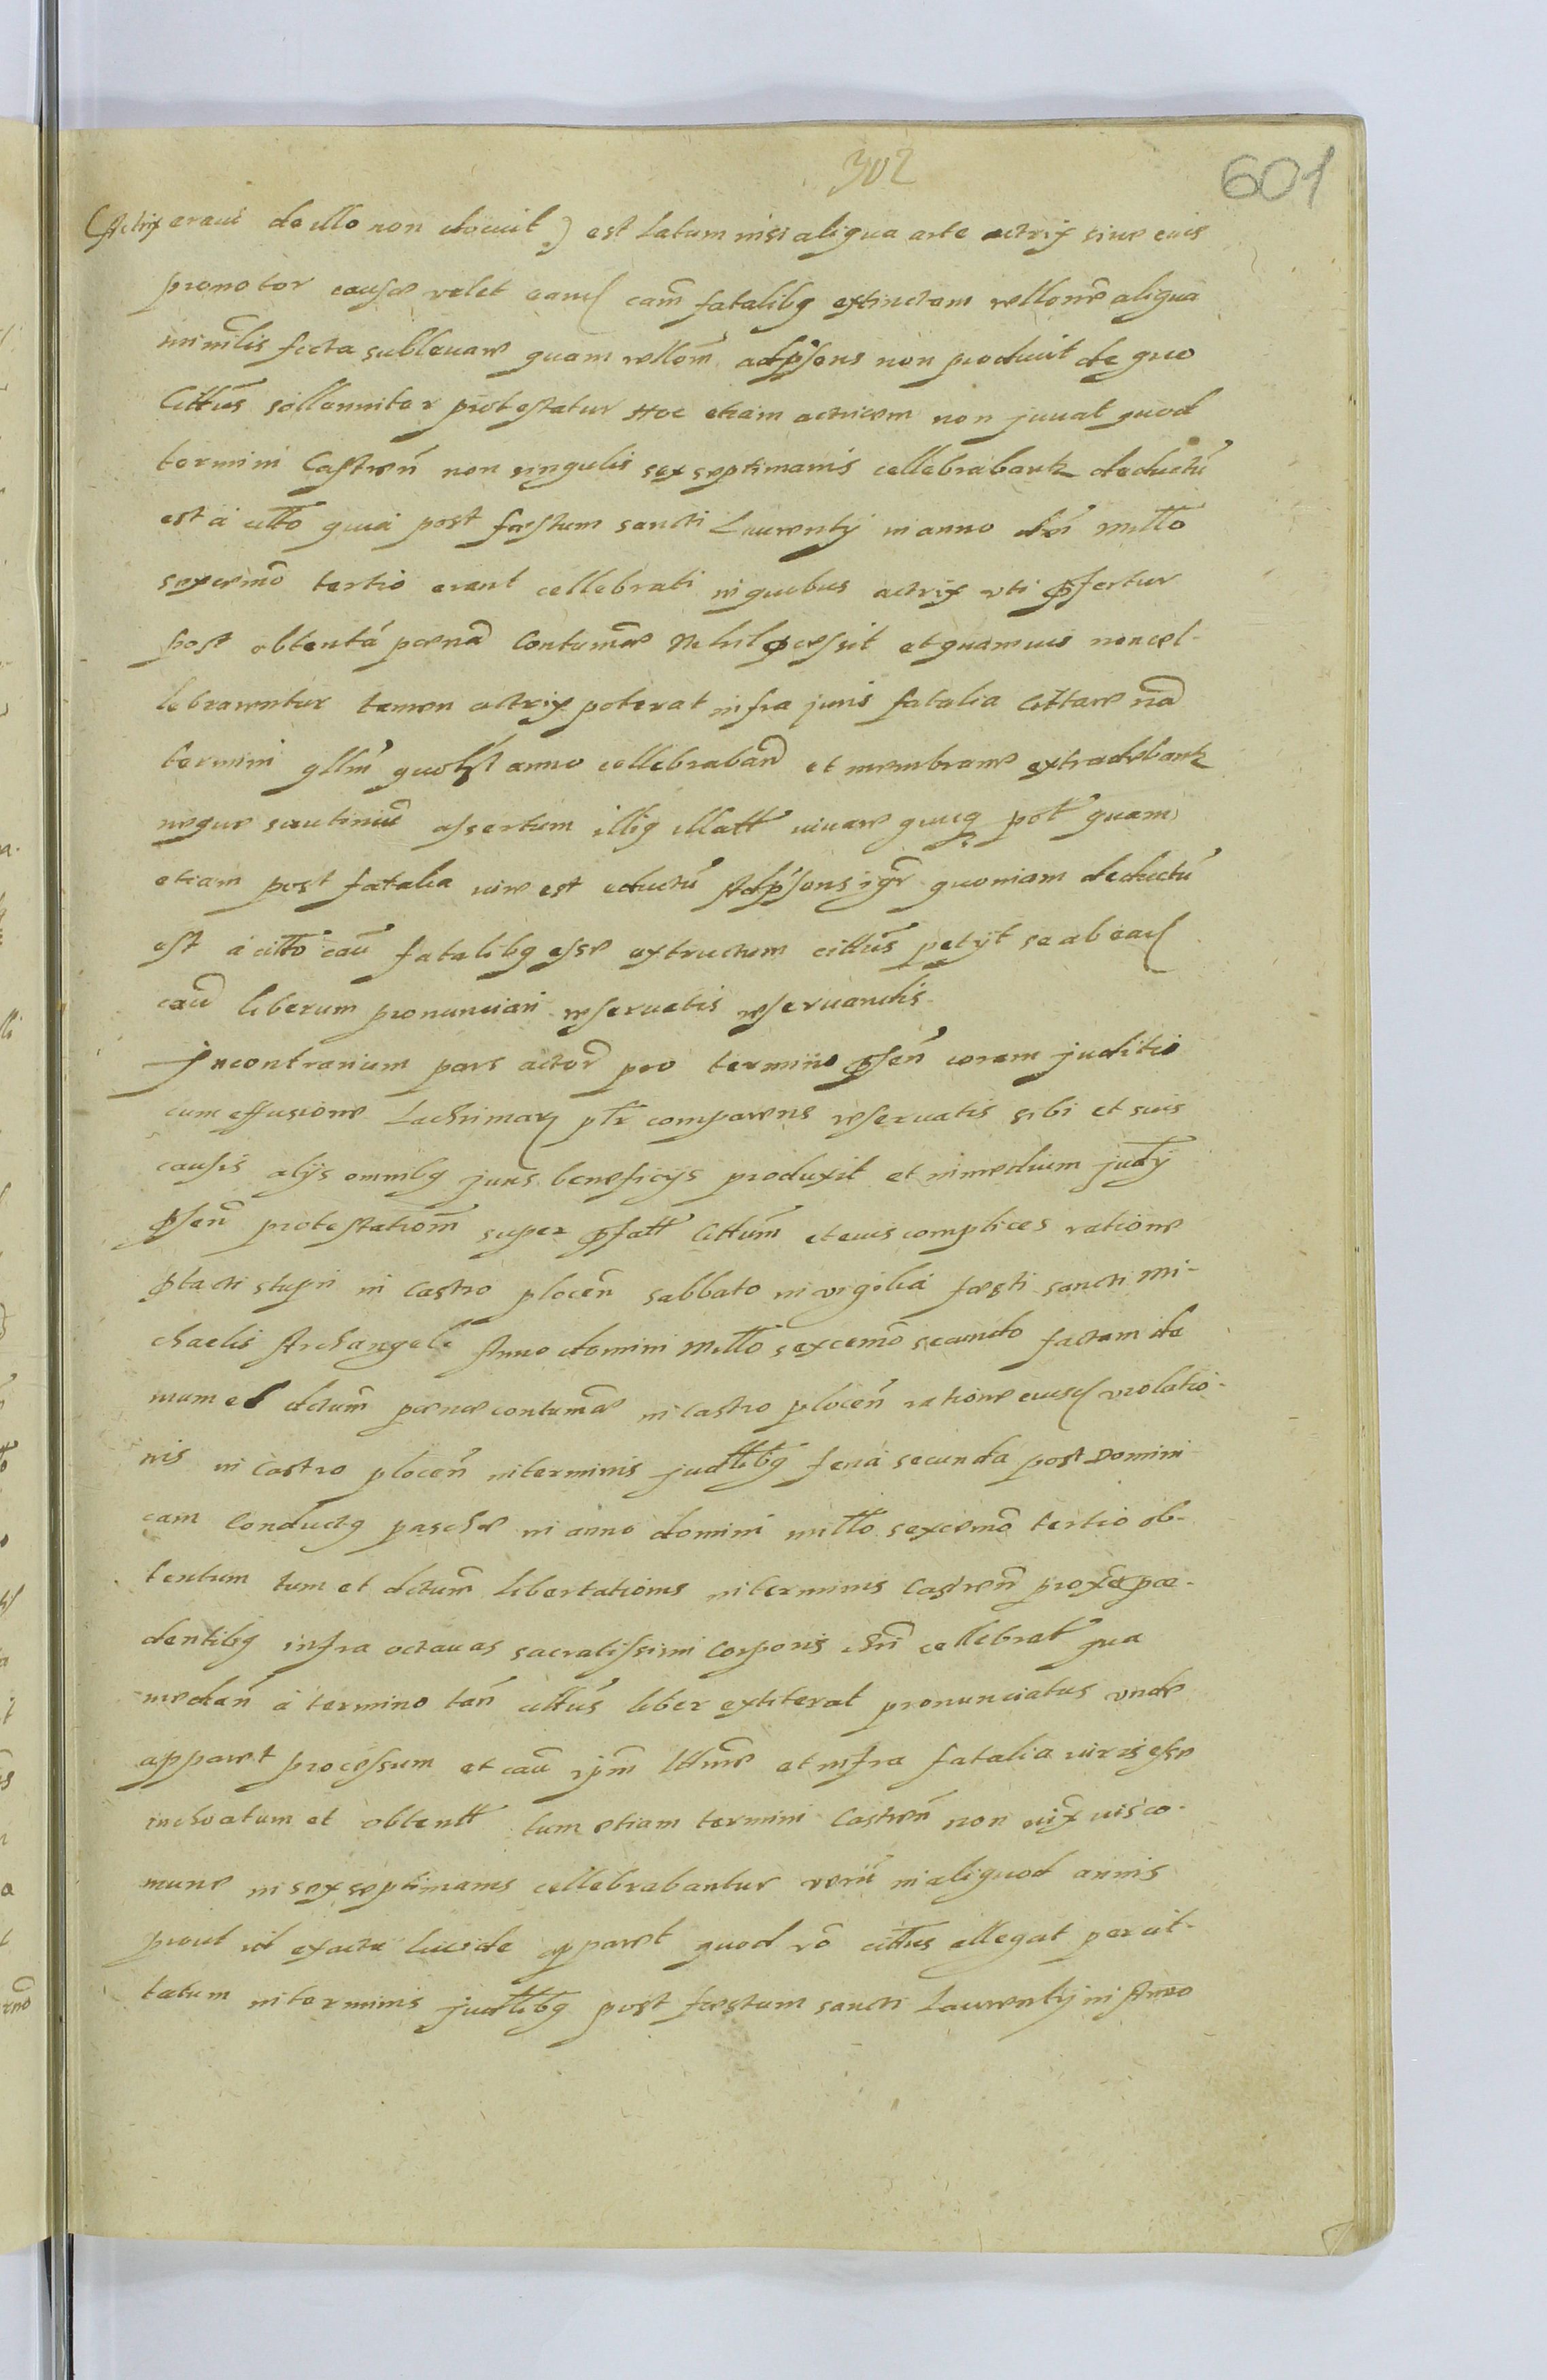 302
601
(Actrix eravi de illo non docuit) est latum nisi aliqua arte actrix sive eius
promotor causæ velet eand cam̃ fatalibg extinctam rellone aliqua
ficta sublevare quam rellom̃ adp̃sens non produxit de quo
Cittus̃ sollenniter protestatur Hoc etiam actricem non juvat quod
termini Castren̄ non singulis sex septimanis cellebrabant deductū
est a citto quia post festum sancti Laurentij in anno dñi millo
sexcemo tertio erant cellebrati in quibus actrix uti p̃fertur
post obtentā pœnā Contumæ Nihil p̃cessit et quamvis non cel-
lebrarentur tamen actrix poterat infra juris fatalia Cittare nā
termini anno cellebraban̄ et membranæ extradebant
neque scrutiniū assertum illig illatt iuvare pot quam
etiam post fatalia iure est eductū Adp̃sens igr quoniam deductū
est a citto cau fatalibg esse extructum cittus petijt se ab ead
cau liberum pronunciari reservatis reservandis
In contrarium pars actor̄ pro termino p̃sen̄ coram juditio
cum effusione Lachrimar ptr comparens reservatis sibi et suis
causis alijs omnibg juris beneficijs produxit et in medium judij
p̃sen̄ protestationem super p̃fatt Cittum et eius complices ratione
p̃tacti stupri in Castro plocen̄ sabbato in vigilia festi sancti Mi-
chaelis Archangeli Anno domini Millo sexcemo secundo factam de
mum et dctum̄ pœnæ contumæ in Castro plocen̄ ratione eiusd violatio-
nis in Castro plocen̄ in terminis judlibg feria secunda post Domini
cam Conductg paschæ in anno domini millo sexcemo tertio ob-
tentum tum et dctum̄ libertationis in terminis Castren̄ proxe præ-
dentibg infra octavas sacratissimi Corporis chri cellebrat qua
median̄ a termino tan̄ cittus liber extiterat pronunciatus unde
apparet processum et cau ipm̄ lttime et infra fatalia iuris esse
inchoatum et obtentt tum etiam termini Castren̄ non vix vis co-
mune in sex septimanis cellebrabantur verū in aliquod annis
prout id ex acta lucide apparet quod vo cittus allegat per cit-
tatum in terminis judlibg post festum sancti Laurentij in Anno